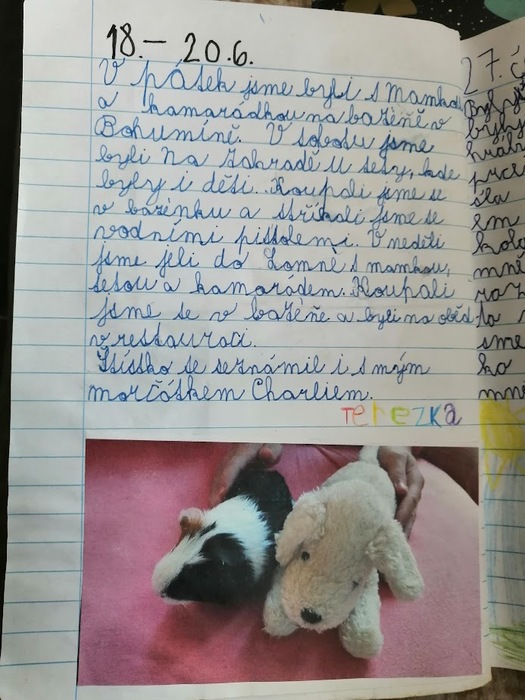 18.– 20.6.
V pátek jsme byli s mamkou
a kamarádkou na bazéně v
Bohumíně. V sobotu jsme
byli na zahradě u sesy, kde
byly i děti. Koupali jsme se
v bazénku a stříkali jsme se
vodními pistolemi. V neděli
jsme jeli do Lomné s mamkou,
sesou a kamarádem. Koupali
jsme se v bazéně a byli na oběd
v restauraci.
se seznámil i s mým
morčátkem Charliem.
Terezka
27.